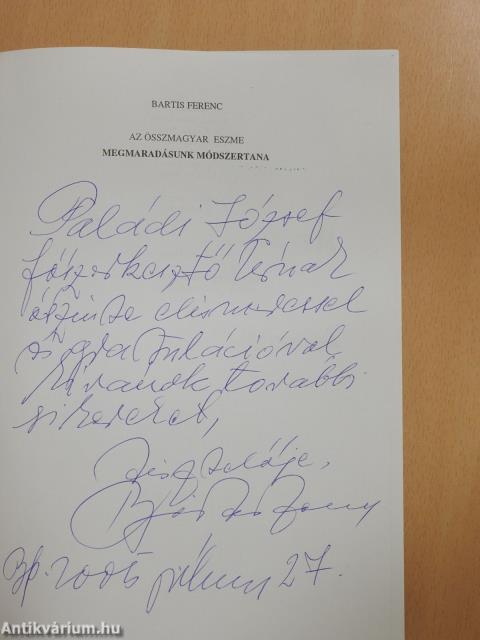 BARTIS FERENC
AZ ÖSSZMAGYAR ESZME
MEGMARADÁSUNK MÓDSZERTANA
Paládi József
főszerkesztő Úrnak
őszinte elismeréssel
és gratulációval
kívánok további
sikereket,
tisztelője,
Bartis Ferenc
Bp. 2005 július 27.
Antikvárium.hu